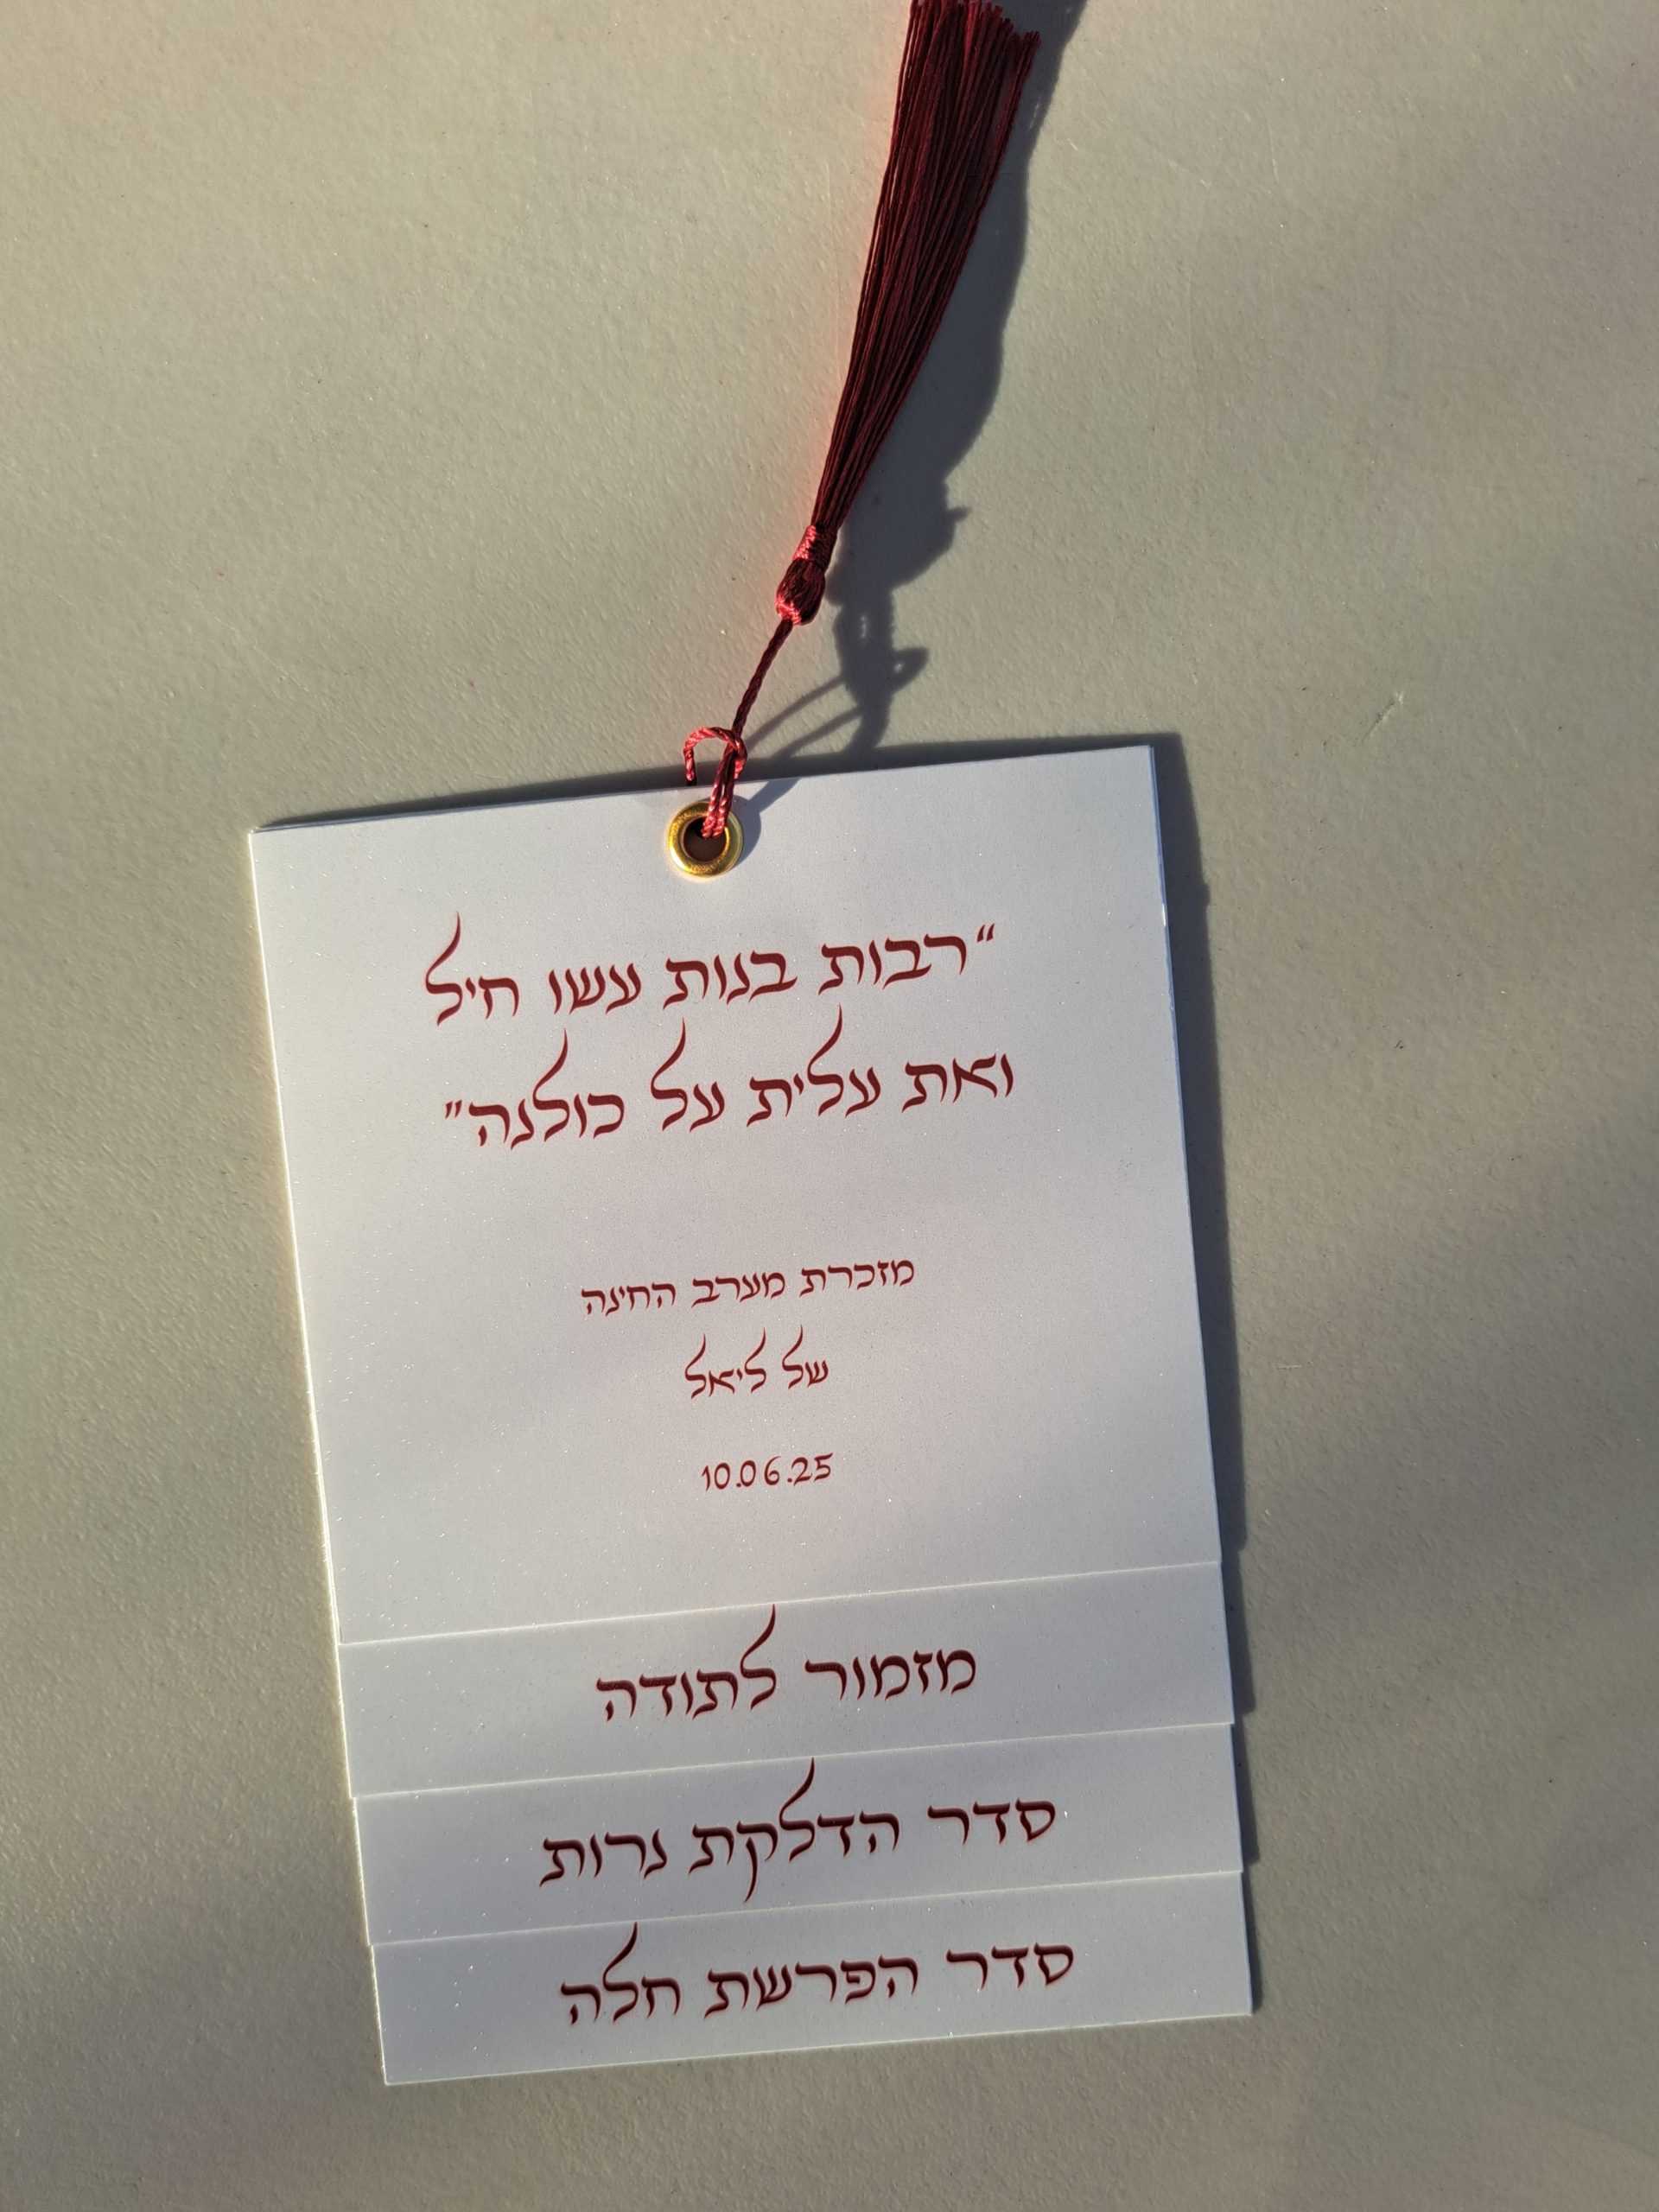 "רבות בנות עשו חיל
ואת עלית על כולנה"
מזכרת מערב החינה
של ליאל
10.06.25
מזמור לתודה
סדר הדלקת נרות
סדר הפרשת חלה